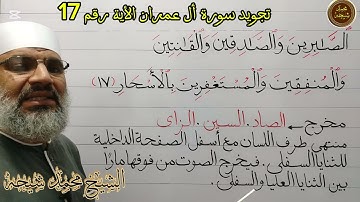 تجويد سورة أل عمران الأية رقم 17
ٱلصَّـٰبِرِينَ وَٱلصَّـٰدِقِينَ وَٱلْقَـٰنِتِينَ
وَٱلْمُنفِقِينَ وَٱلْمُسْتَغْفِرِينَ بِٱلْأَسْحَارِ (١٧)
مخرج ← الصاد. السين. الزاى
منتهى طرف اللسان مع أسفل الصفحة الداخلية
للثنايا السفلى. فيخرج الصوت من فوقها مارًا
بين الثنايا العليا والسفلى.
الشيخ محمد شيحه